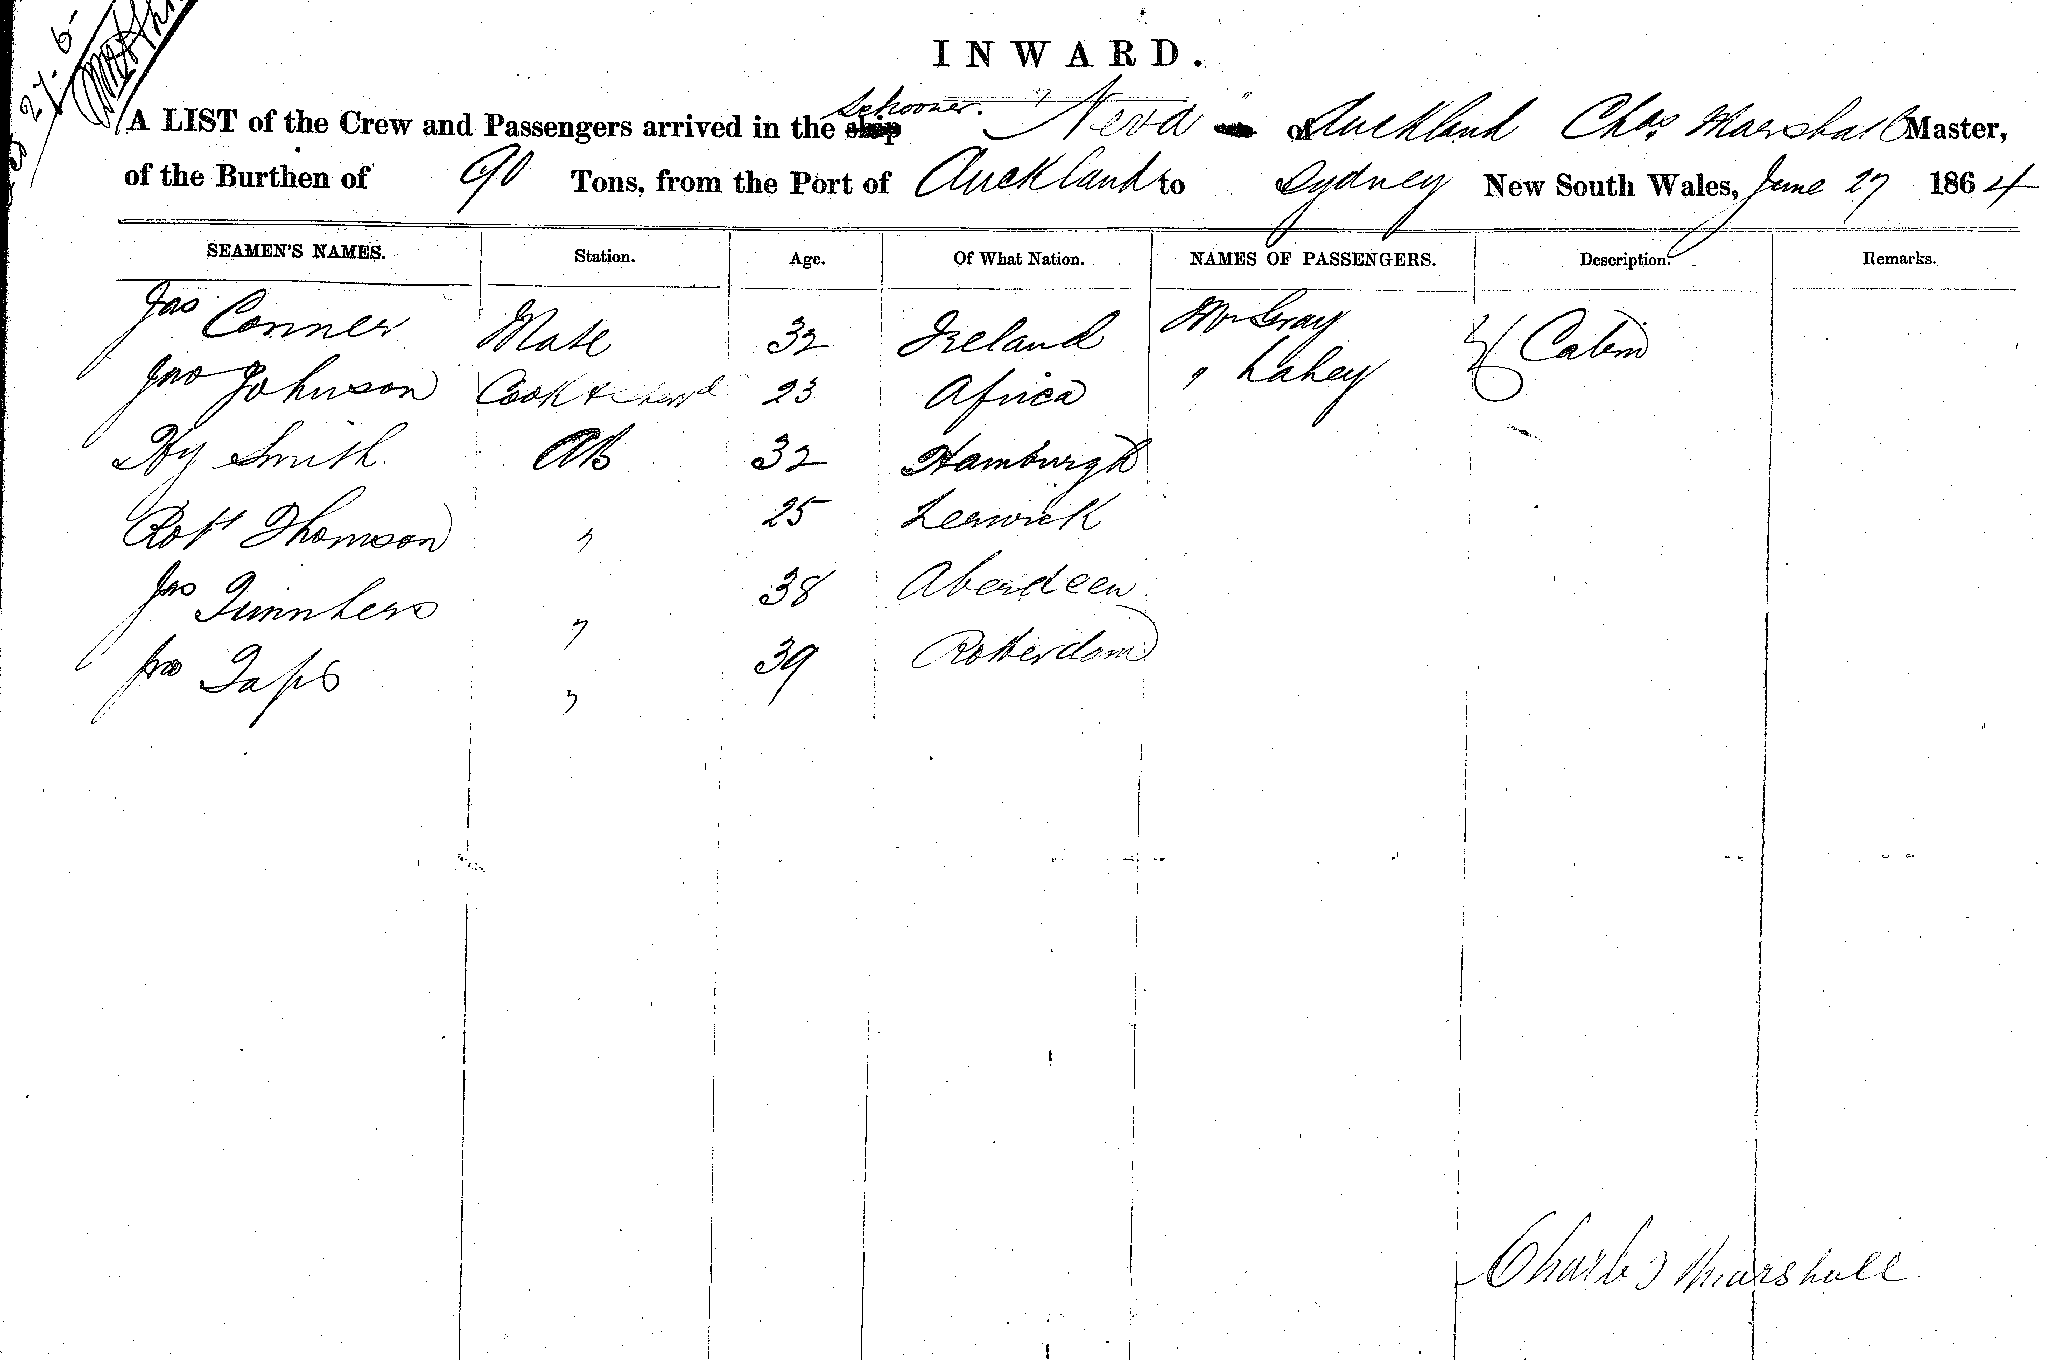 27.6
INWARD.
A LIST of the Crew and Passengers arrived in the ship Schooner "Neva" of Auckland Chas Marshall Master,
of the Burthen of 90 Tons, from the Port of Auckland to Sydney New South Wales, June 27 1864
SEAMEN'S NAMES. Station. Age. Of What Nation. NAMES OF PASSENGERS. Description. Remarks.
Jas Conner Mate 32 Ireland Mr Gray Cabin
Jno Johnson Cook & 23 Africa " Lahey
Hy Smith AB 32 Hamburgh
Robt Thomson " 25 Lerwick
Jas " 38 Aberdeen
Jno Taps " 39 Rotterdam
Charles Marshall